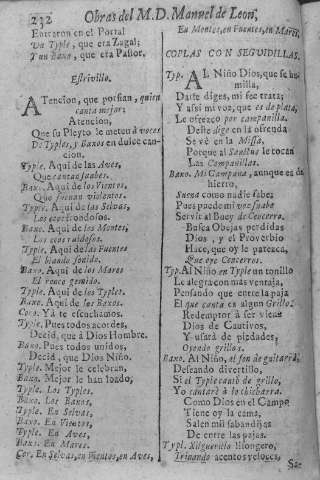 232 Obras del M.D. Manuel de Leon,
Entraron en el Portal
Un Typle, que era Zagal;
Y un Baxo, que era Pastor.
Estrivillo.
ATencion, que porfian, quien
canta mejor:
Atencion,
Que su Pleyto le meten à voces
De Typles, y Baxos en dulce can-
cion.
Typle. Aqui de las Aves,
Que cantan suaves.
Baxo. Aqui de los Vientos,
Que suenan violentos.
Typle. Aqui de las Selvas,
Los ecos
Baxo. Aqui de los Montes,
Los ecos ruidosos.
Typle. Aqui de las Fuentes
El blando sonido.
Baxo. Aqui de los Mares
El ronco gemido.
Typle. Aqui de los Typles.
Baxo. Aqui de los Baxos.
Coro. Yà te escuchamos.
Typle. Pues todos acordes,
Decid, que à Dios Hombre.
Baxo. Pues todos unidos,
Decid, que à Dios Niño.
Typle. Mejor le celebran,
Baxo. Mejor le han loado,
Typle. Los Typles.
Baxo. Los Baxos.
Typle. En Selvas,
Baxo. En Vientos,
Typle. En Aves,
Baxo. En Mares.
Cor. En Selvas, en Vientos, en Aves,
En Montes, en Fuentes, en Mares.
COPLAS CON SEGUIDILLAS.
Typ. AL Niño Dios, que se hu-
milla,
Darte diges, mi fee trata;
Y assi mi voz, que es de plata,
Le ofrezco por campanilla.
Deste dige en la ofrenda
Se vè en la Missa,
Porque al Sanctus le tocan
Las Campanillas.
Baxo. Mi Campana, aunque es de
hierro,
Suena como nadie sabe;
Pues puede mi voz suabe
Servir al Buey de Concerro.
Busca Ovejas perdidas
Dios, y el Proverbio
Hace, que oy le parezca,
Que oye Concerros.
Typ. Al Niño en Typle un tonillo
Le alegra con mas ventaja,
Pensando que entre la paja
El que canta es algun Grillo:
Redemptor à ser viene
Dios de Cautivos,
Y usarà de piedades,
Oyendo grillos.
Baxo. Al Niño, al son de guitarra,
Deseando divertillo,
Si el Typle cantò de grillo,
Yo cantarè à lo chicharra.
Como Dios en el Campo
Tiene oy la cama,
Salen mil sabandijas
De entre las pajas.
Typl. Xilguerillo lisongero,
Trinando acentos veloces,